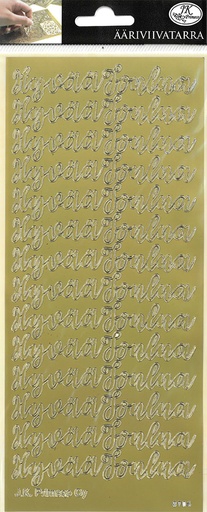 JK
ÄÄRIVIIVATARRA
Hyvää Joulua
Hyvää Joulua
Hyvää Joulua
Hyvää Joulua
Hyvää Joulua
Hyvää Joulua
Hyvää Joulua
Hyvää Joulua
Hyvää Joulua
Hyvää Joulua
Hyvää Joulua
Hyvää Joulua
Hyvää Joulua
Hyvää Joulua
J.K. Primeco Oy